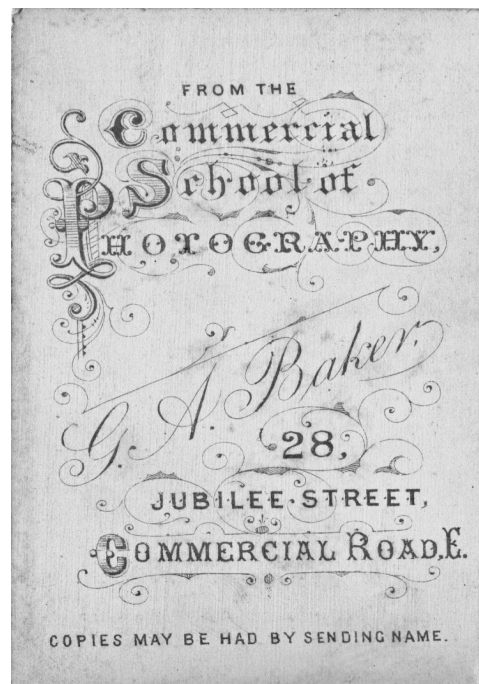 FROM THE
Commercial
School of
PHOTOGRAPHY,
G. A. Baker.
28,
JUBILEE STREET,
COMMERCIAL ROAD, E.
COPIES MAY BE HAD BY SENDING NAME.